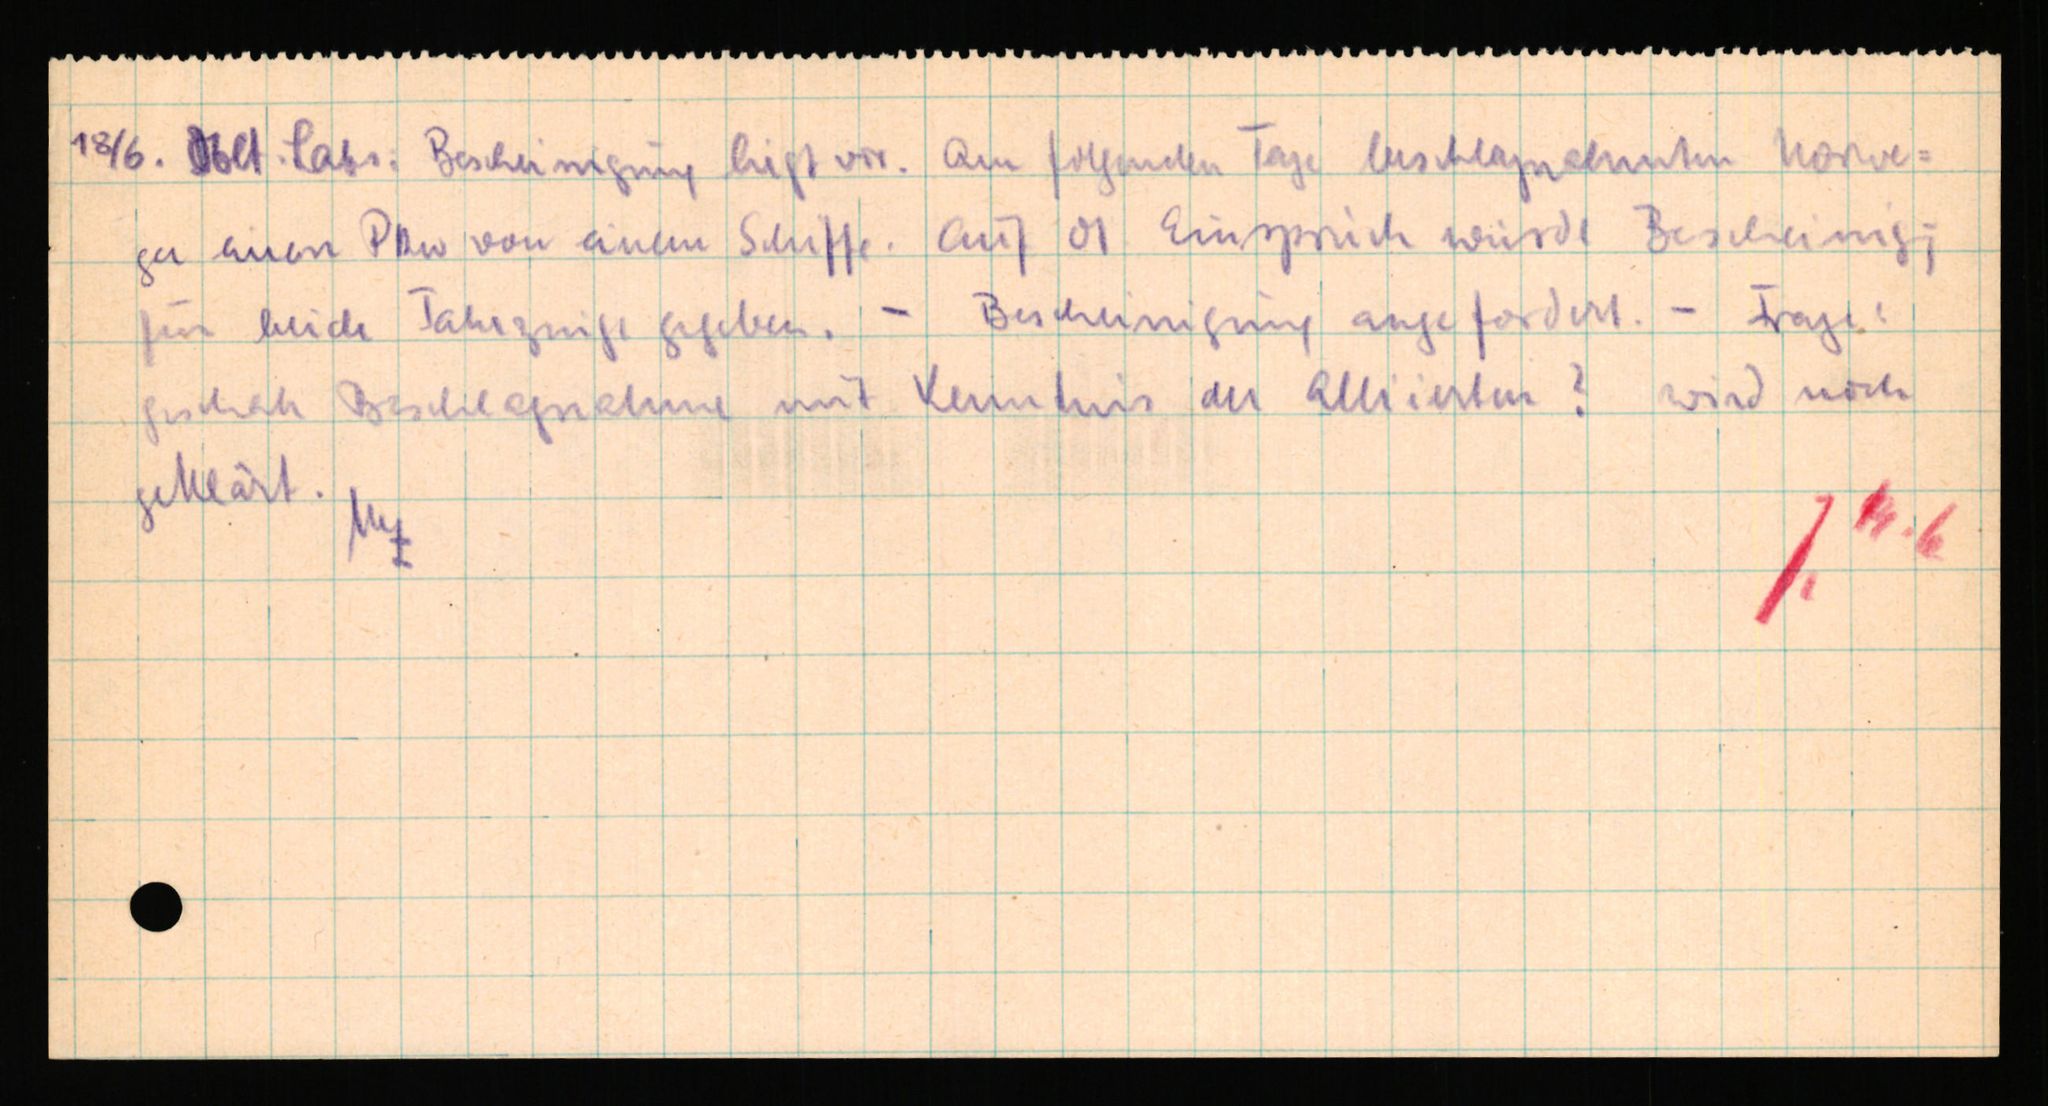 18/6. Oblt. Lahs: Bescheinigung liegt vor. Am folgenden Tage beschlagnahmten Norwe=
ger einen PKw von einem Schiffe. Auf Einspruch wurde Bescheinigg
für beide Fahrzeuge gegeben. – Bescheinigung angefordert. – Frage:
geschah Beschlagnahme mit Kenntnis der Alliierten? wird noch
geklärt.